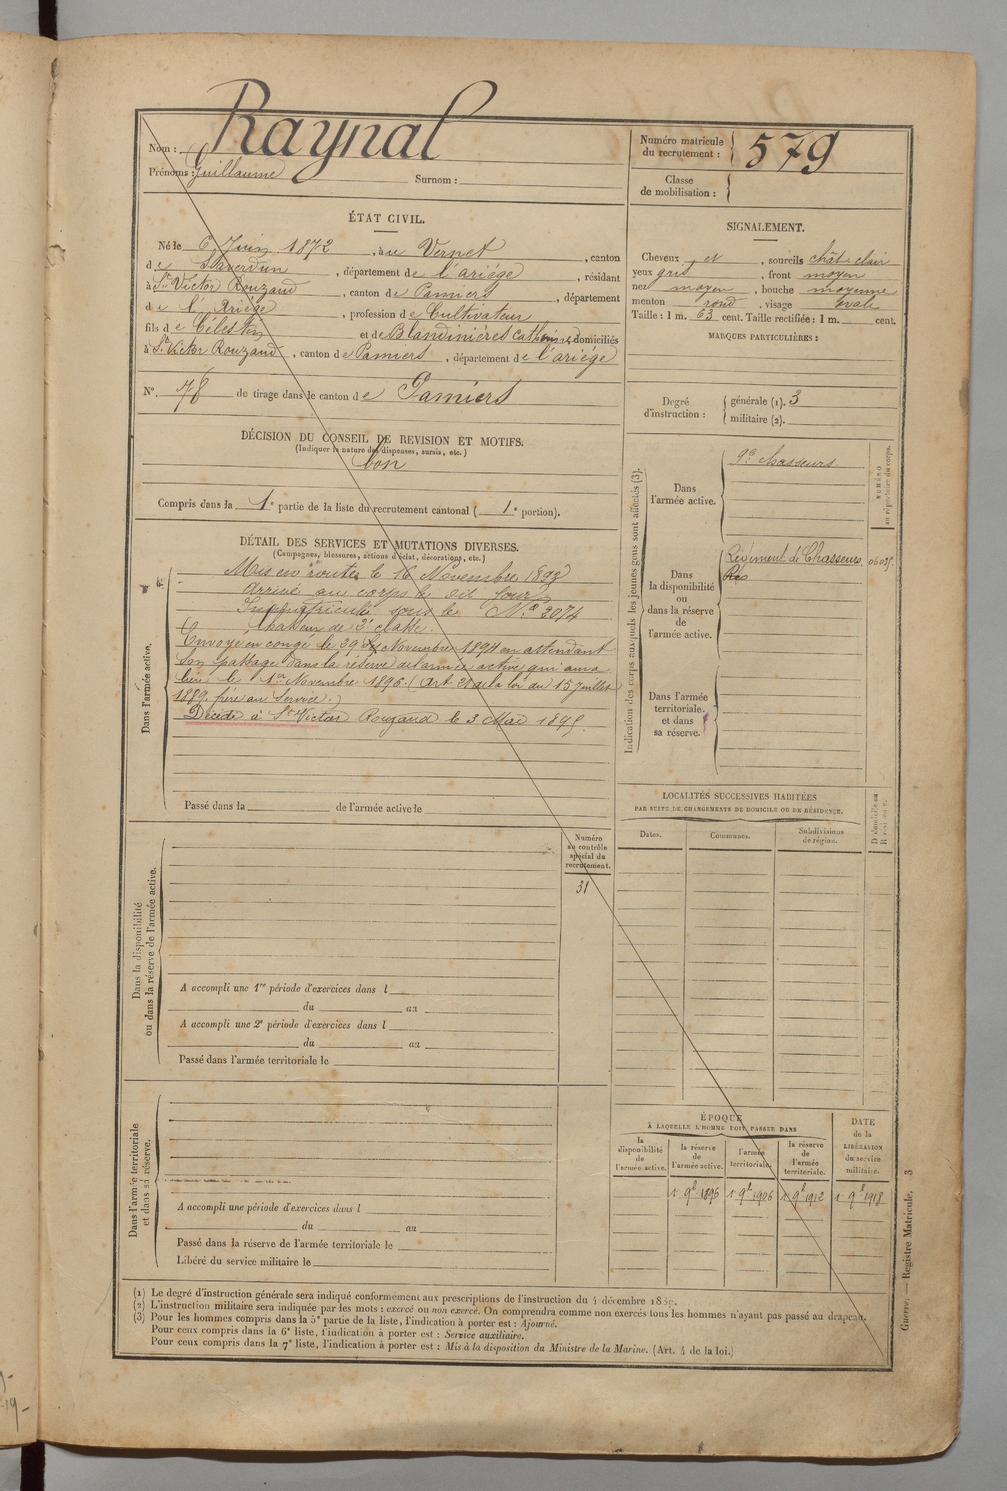 Nom : Raynal
Prénoms : Guillaume Surnom :
Numéro matricule
du recrutement : 579
Classe
de mobilisation :
ÉTAT CIVIL.
Né le 6 Juin 1872, à au Vernet, canton
de Saverdun, département de l'ariége, résidant
à St Victor Rouzaud, canton de Pamiers, département
de l'Ariége, profession de Cultivateur
fils de Célestin et de Blandinières Catherine, domiciliés
à St Victor Rouzaud, canton de Pamiers, département de l'ariége
No. 78 de tirage dans le canton de Pamiers
DÉCISION DU CONSEIL DE REVISION ET MOTIFS.
(Indiquer la nature des dispenses, sursis, etc.)
bon
Compris dans la 1e partie de la liste du recrutement cantonal ( 1e portion).
SIGNALEMENT.
Cheveux et, sourcils chât. clair
yeux gris, front moyen
nez moyen, bouche moyenne
menton rond, visage ovale
Taille : 1 m. 63 cent. Taille rectifiée : 1 m. cent.
MARQUES PARTICULIÈRES :
Degré
d'instruction :
générale (1). 3
militaire (2).
DÉTAIL DES SERVICES ET MUTATIONS DIVERSES.
(Campagnes, blessures, actions d'éclat, décorations, etc.)
Dans l'armée active.
Mis en route le 16 Novembre 1893
arrivé au corps le dit jour
Immatriculé sous le No 3074
Chasseur de 2e classe.
Envoyé en congé le 29 Novembre 1894 en attendant
son passage dans la réserve de l'armée active qui aura
lieu le 1er Novembre 1896. (Art. 21 de la loi du 15 Juillet
1889. frère au Service.)
Décédé à St Victor Rouzaud le 3 Mai 1895.
Passé dans la de l'armée active le
Indication des corps auxquels les jeunes gens sont affectés (3).
NUMÉRO
au répertoire du corps.
Dans
l'armée active.
9e Chasseurs
Dans
la disponibilité
ou
dans la réserve
de
l'armée active.
Régiment de Chasseurs
Dans l'armée
territoriale
et dans
sa réserve.
LOCALITÉS SUCCESSIVES HABITÉES
PAR SUITE DE CHANGEMENTS DE DOMICILE OU DE RÉSIDENCE.
Dates. Communes. Subdivisions
de région.
Dans la disponibilité
ou dans la réserve de l'armée active.
Numéro
au contrôle
spécial du
recrutement.
31
A accompli une 1re période d'exercices dans l
du au
A accompli une 2e période d'exercices dans l
du au
Passé dans l'armée territoriale le
Dans l'armée territoriale
et dans sa réserve.
A accompli une période d'exercices dans l
du au
Passé dans la réserve de l'armée territoriale le
Libéré du service militaire le
ÉPOQUE
À LAQUELLE L'HOMME DOIT PASSER DANS
la
disponibilité
de
l'armée active.
la réserve
de
l'armée active.
l'armée
territoriale.
la réserve
de
l'armée
territoriale.
DATE
de la
LIBÉRATION
du service
militaire.
1 9b 1896 1 9b 1906 1 9b 1912 1 9b 1918
(1) Le degré d'instruction générale sera indiqué conformément aux prescriptions de l'instruction du 4 décembre 1889.
(2) L'instruction militaire sera indiquée par les mots : exercé ou non exercé. On comprendra comme non exercés tous les hommes n'ayant pas passé au drapeau.
(3) Pour les hommes compris dans la 5e partie de la liste, l'indication à porter est : Ajourné.
Pour ceux compris dans la 6e liste, l'indication à porter est : Service auxiliaire.
Pour ceux compris dans la 7e liste, l'indication à porter est : Mis à la disposition du Ministre de la Marine. (Art. 4 de la loi.)
Guerre. — Registre Matricule. 3